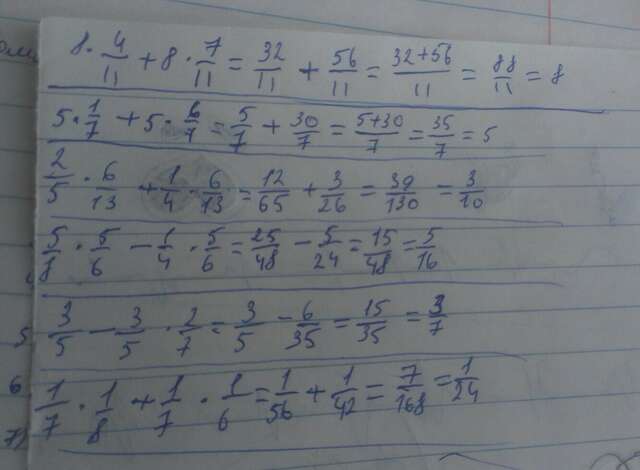 8 · 4/11 + 8 · 7/11 = 32/11 + 56/11 = 32+56/11 = 88/11 = 8
5 · 1/7 + 5 · 6/7 = 5/7 + 30/7 = 5+30/7 = 35/7 = 5
2/5 · 6/13 + 1/4 · 6/13 = 12/65 + 3/26 = 39/130 = 3/10
5/8 · 5/6 - 1/4 · 5/6 = 25/48 - 5/24 = 15/48 = 5/16
5) 3/5 - 3/5 · 2/7 = 3/5 - 6/35 = 15/35 = 3/7
6 1/7 · 1/8 + 1/7 · 1/6 = 1/56 + 1/42 = 7/168 = 1/24
7)